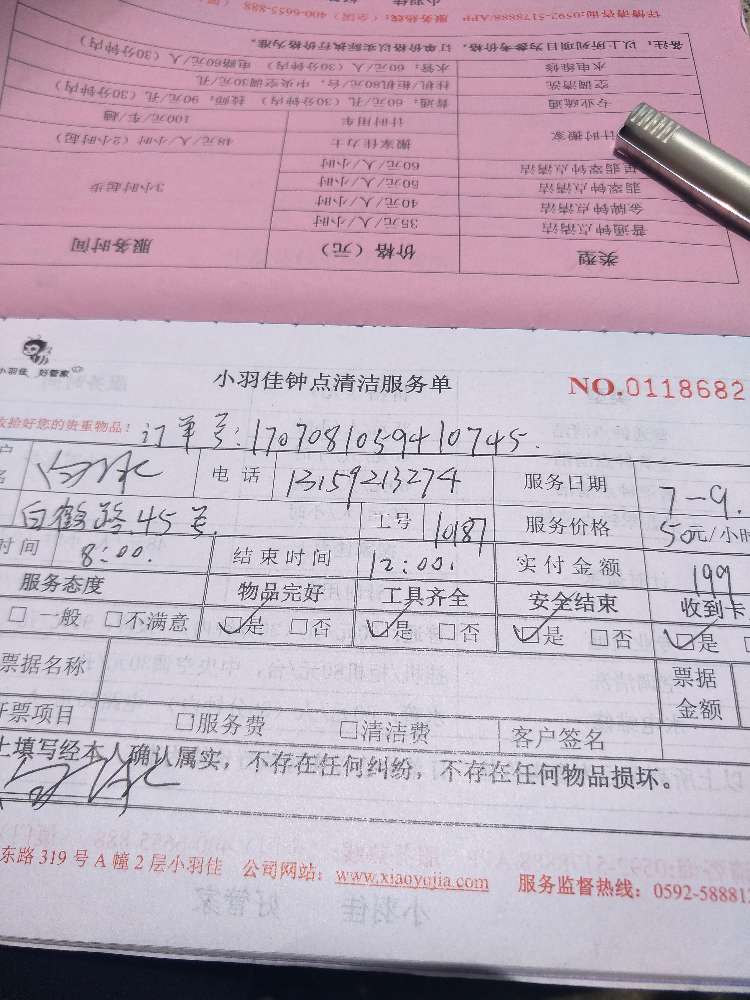 详情请咨询:0592-5178888/APP 服务热线:(全国)400-6655-888
备注:以上所列项目为参考价格,订单价格以实际执行价格为准。
水电维修 水管:60元/人(30分钟内)电路60元/人(30分钟内)
空调清洗 挂机/柜机80元/台,中央空调30元/孔
专业疏通 普通:60元/孔(30分钟内) 技师:90元/孔(30分钟内)
计时搬家 计时用车 100元/车/趟
搬家佳力士 48元/人/小时(2小时起)
翡翠钟点清洁 60元/人/小时
翡翠钟点清洁 50元/人/小时 3小时起步
金牌钟点清洁 40元/人/小时
普通钟点清洁 35元/人/小时
类型 价格(元) 服务时间
小羽佳 好管家
小羽佳钟点清洁服务单 NO.0118682
收拾好您的贵重物品! 订单号:1707081059410745.
电话 13159213274 服务日期 7-9.
白鹤路.45号 工号 10187 服务价格 50元/小时
时间 8:00. 结束时间 12:00. 实付金额 199
服务态度 物品完好 工具齐全 安全结束 收到卡
□一般 □不满意 ☑是 □否 ☑是 □否 ☑是 □否 ☑是
票据名称 票据金额
开票项目 □服务费 □清洁费 客户签名
上填写经本人确认属实,不存在任何纠纷,不存在任何物品损坏。
东路319号A幢2层小羽佳 公司网站:www.xiaoyujia.com 服务监督热线:0592-588812